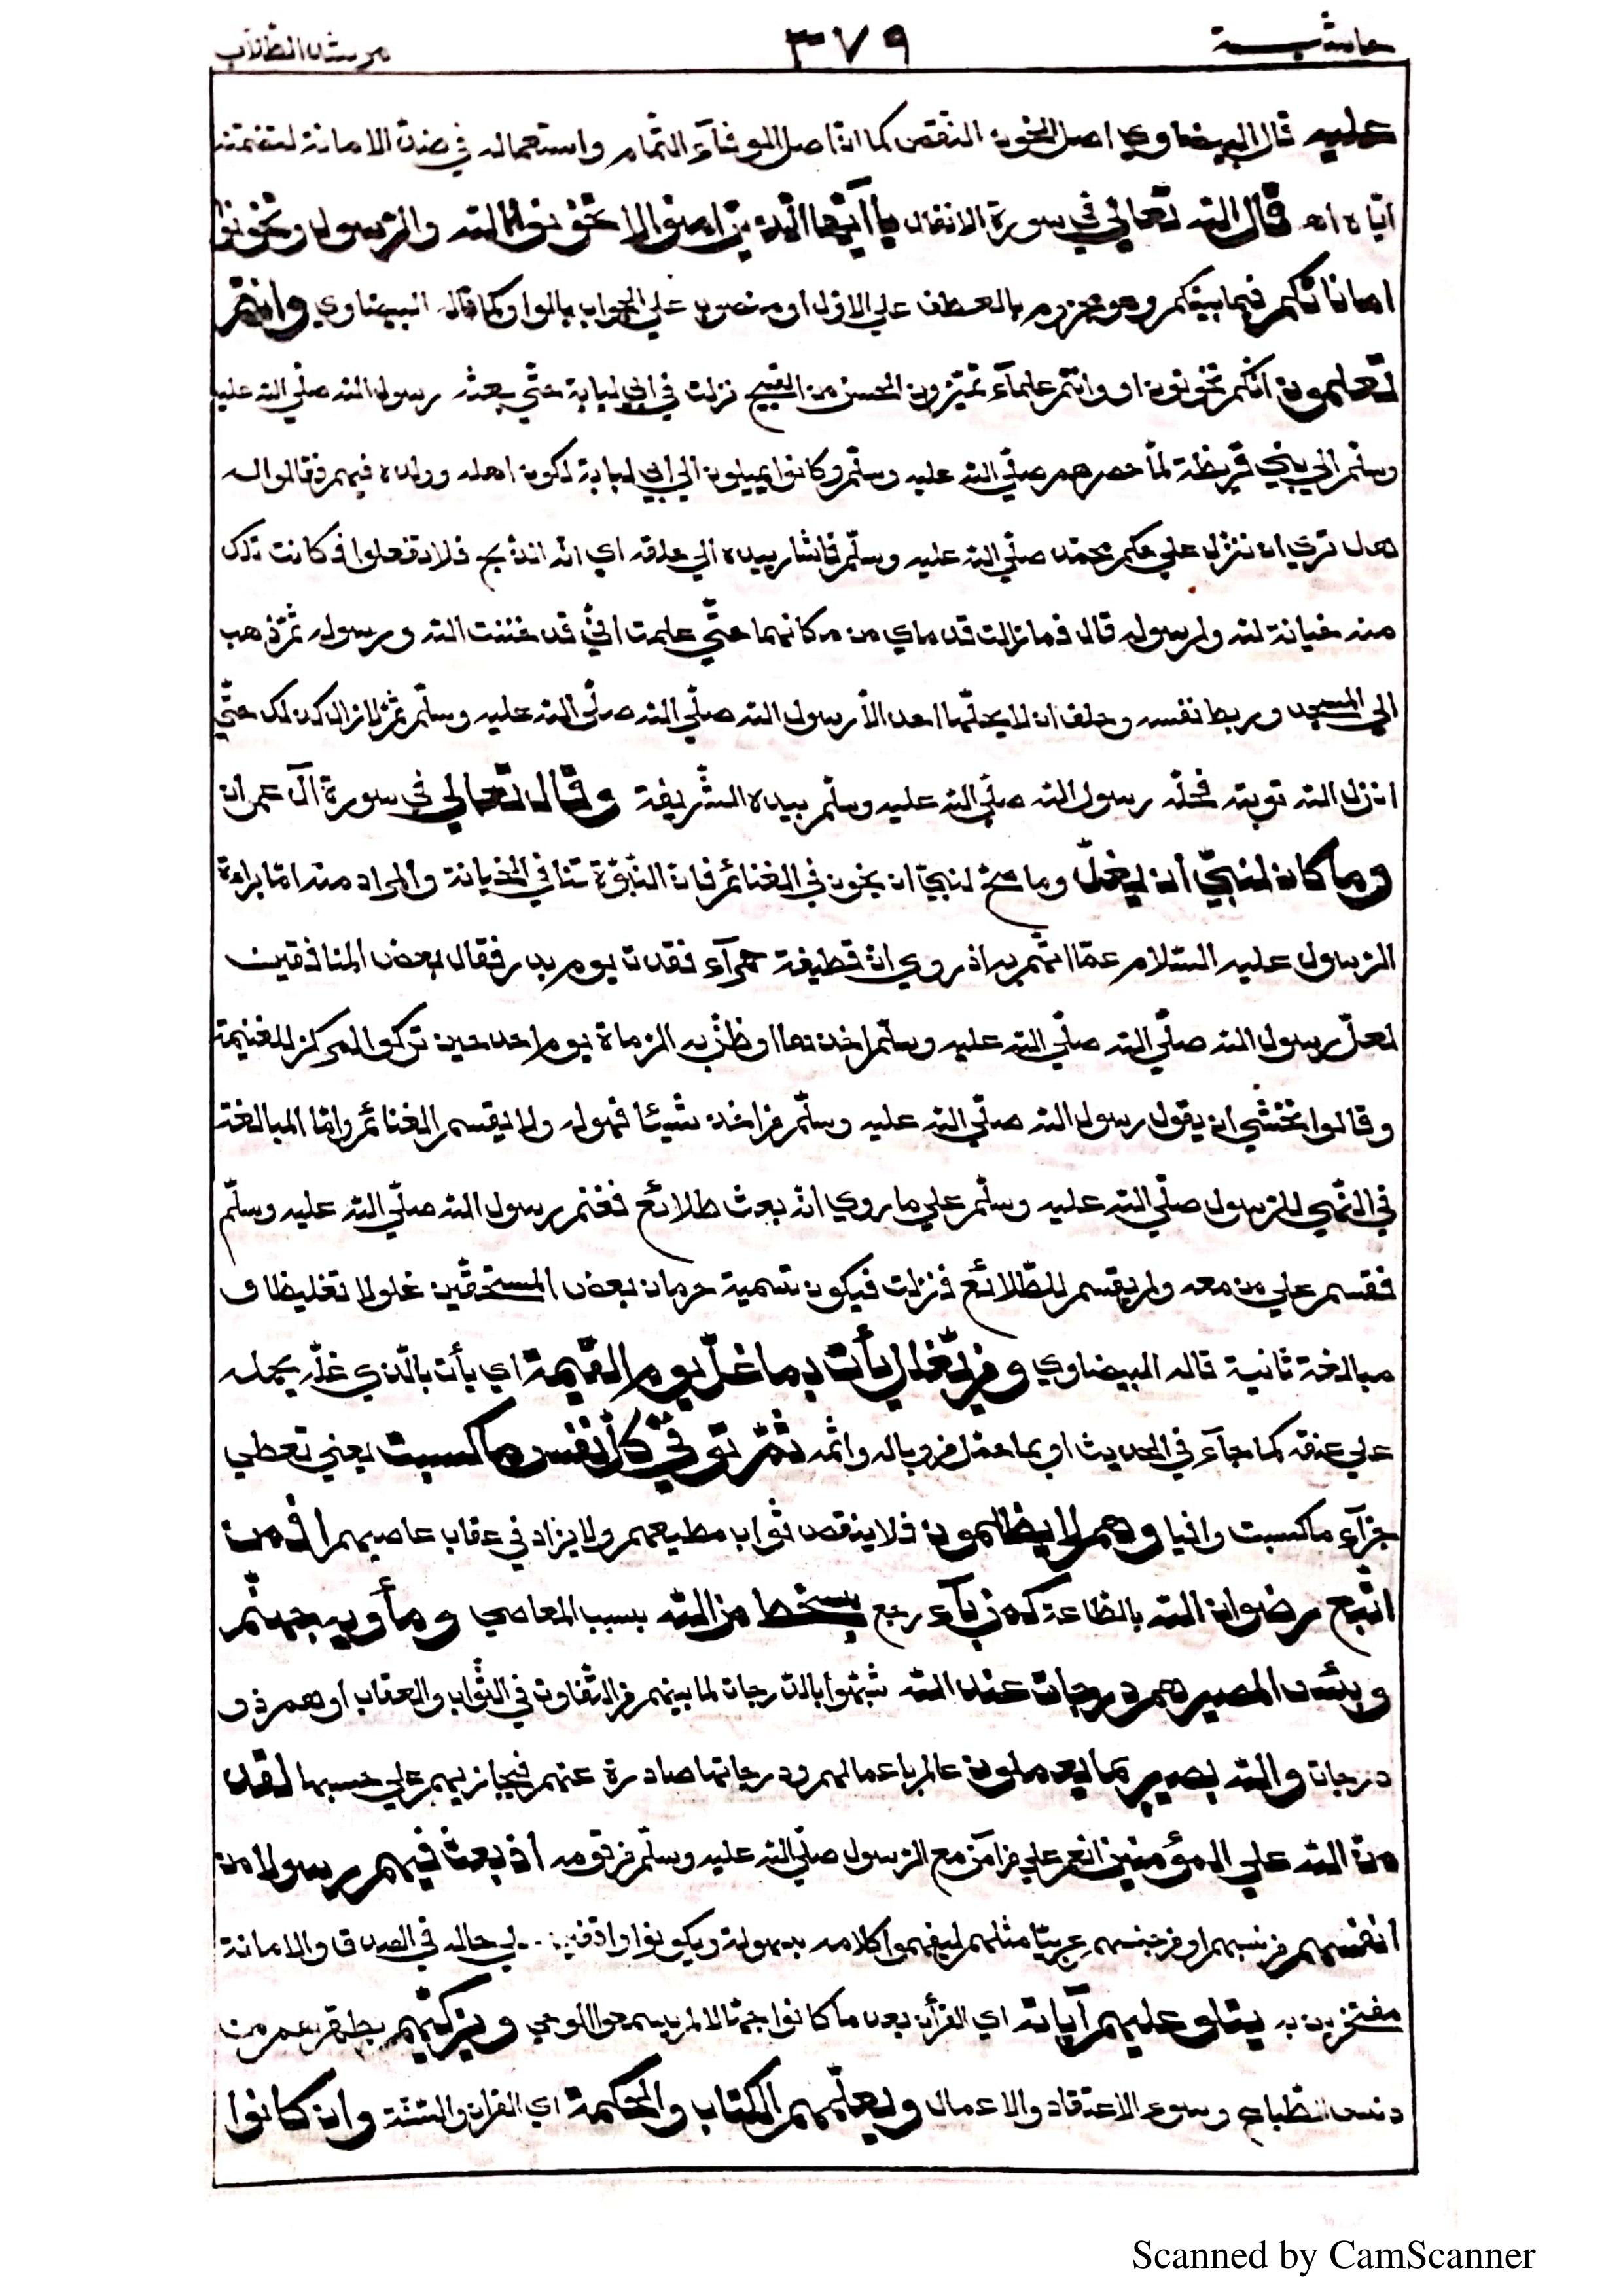 حاشية ٣٧٩ مرشد الطلاب
عليه قال البيضاوي اصل الخون النقص كما انّ اصل الوفآء التّمام واستعماله في ضدّ الامانة لتضمّنه
ايّاه اه قال الله تعالي في سورة الانفال يا أيّها الّذين امنوا لا تخونوا الله والرّسول وتخونوا
اماناتكم فيما بينكم وهو مجزوم بالعطف علي الاوّل او منصوب علي الجواب بالواو كما قاله البيضاوي وانتم
تعلمون انّكم تخونون او وانتم علمآء تميّزون الحسن من القبيح نزلت في ابي لبابة حتّي بعثه رسول الله صلّي الله عليه
وسلّم الي بني قريظة لمّا حصرهم صلّي الله عليه وسلّم وكانوا يميلون الي ابي لبابة لكون اهله وولده فيهم فقالوا له
هل تري ان ننزل علي حكم محمّد صلّي الله عليه وسلّم فاشار بيده الي حلقه اي انّه الذّبح فلا تفعلوا فكانت تلك
منه خيانة لله ولرسوله قال فما زالت قدماي من مكانهما حتّي علمت انّي قد خنت الله ورسوله ثمّ ذهب
الي المسجد وربط نفسه وحلف ان لا يحلّها احد الاّ رسول الله صلّي الله صلّي الله عليه وسلّم ثمّ لا زال كذلك حتّي
انزل الله توبته فحلّه رسول الله صلّي الله عليه وسلّم بيده الشّريفة وقال تعالي في سورة آل عمران
وما كان لنبيّ أن يغلّ وما صحّ لنبيّ ان يخون في الغنائم فان النّبوّة تنافي الخيانة والمراد منه امّا براءة
الرّسول عليه السّلام عمّا اتّهم به اذ روي انّ قطيفة حمرآء فقدت يوم بدر فقال بعض المنافقين
لعلّ رسول الله صلّي الله صلّي الله عليه وسلّم اخذها او ظنّ به الرّماة يوم احد حين تركوا المركز للغنيمة
وقالوا نخشي ان يقول رسول الله صلّي الله عليه وسلّم من اخذ شيئا فهو له ولا يقسم الغنائم وامّا المبالغة
في النّهي للرّسول صلّي الله عليه وسلّم علي ما روي انّه بعث طلائع فغنم رسول الله صلّي الله عليه وسلّم
فقسم علي من معه ولم يقسم للطّلائع فنزلت فيكون تسمية حرمان بعض المستحقّين غلولا تغليظا و
مبالغة ثانية قاله البيضاوي ومن يغلل يأت بما غلّ يوم القيمة اي يأت بالّذي غلّه يحمله
علي عنقه كما جآء في الحديث او بما احتمل من وباله واثمه ثمّ توفّي كلّ نفس ما كسبت يعني تعطي
جزآء ما كسبت وافيا وهم لا يظلمون فلا ينقص ثواب مطيعهم ولا يزاد في عقاب عاصيهم افمن
اتّبع رضوان الله بالطّاعة كمن بآء رجع بسخط من الله بسبب المعاصي ومأويه جهنّم
وبئس المصير هم درجات عند الله شبّهوا بالدّرجات لما بينهم من التّفاوت في الثّواب والعقاب او هم ذو
درجات والله بصير بما يعملون عالم باعمالهم ودرجاتها صادرة عنهم فيجازيهم علي حسبها لقد
منّ الله علي المؤمنين انعم علي من آمن مع الرّسول صلّي الله عليه وسلّم من قومه اذ بعث فيهم رسولا من
انفسهم من نسبهم او من جنسهم عربيّا مثلهم ليفهموا كلامه بسهولة ويكونوا واقفين علي حاله في الصدق والامانة
مفتخرين به يتلو عليهم آياته اي القرأن بعد ما كانوا جهّالا لم يسمعوا الوحي ويزكّيهم يطهّرهم من
دنس الطّباع وسوء الاعتقاد والاعمال ويعلّمهم الكتاب والحكمة اي القران والسّنّة وان كانوا
Scanned by CamScanner